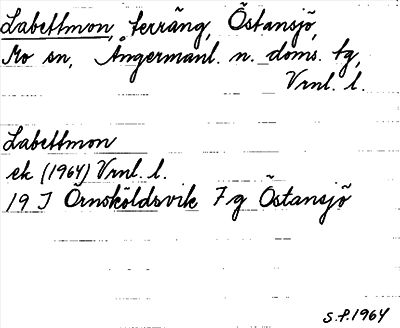 Labettmon, terräng, Östansjö,
Mo sn, Ångermanl. n. doms. tg,
Vrnl. l.
Labettmon
ek (1964) Vrnl. l.
19 J Örnsköldsvik 7 g Östansjö
S.P. 1964